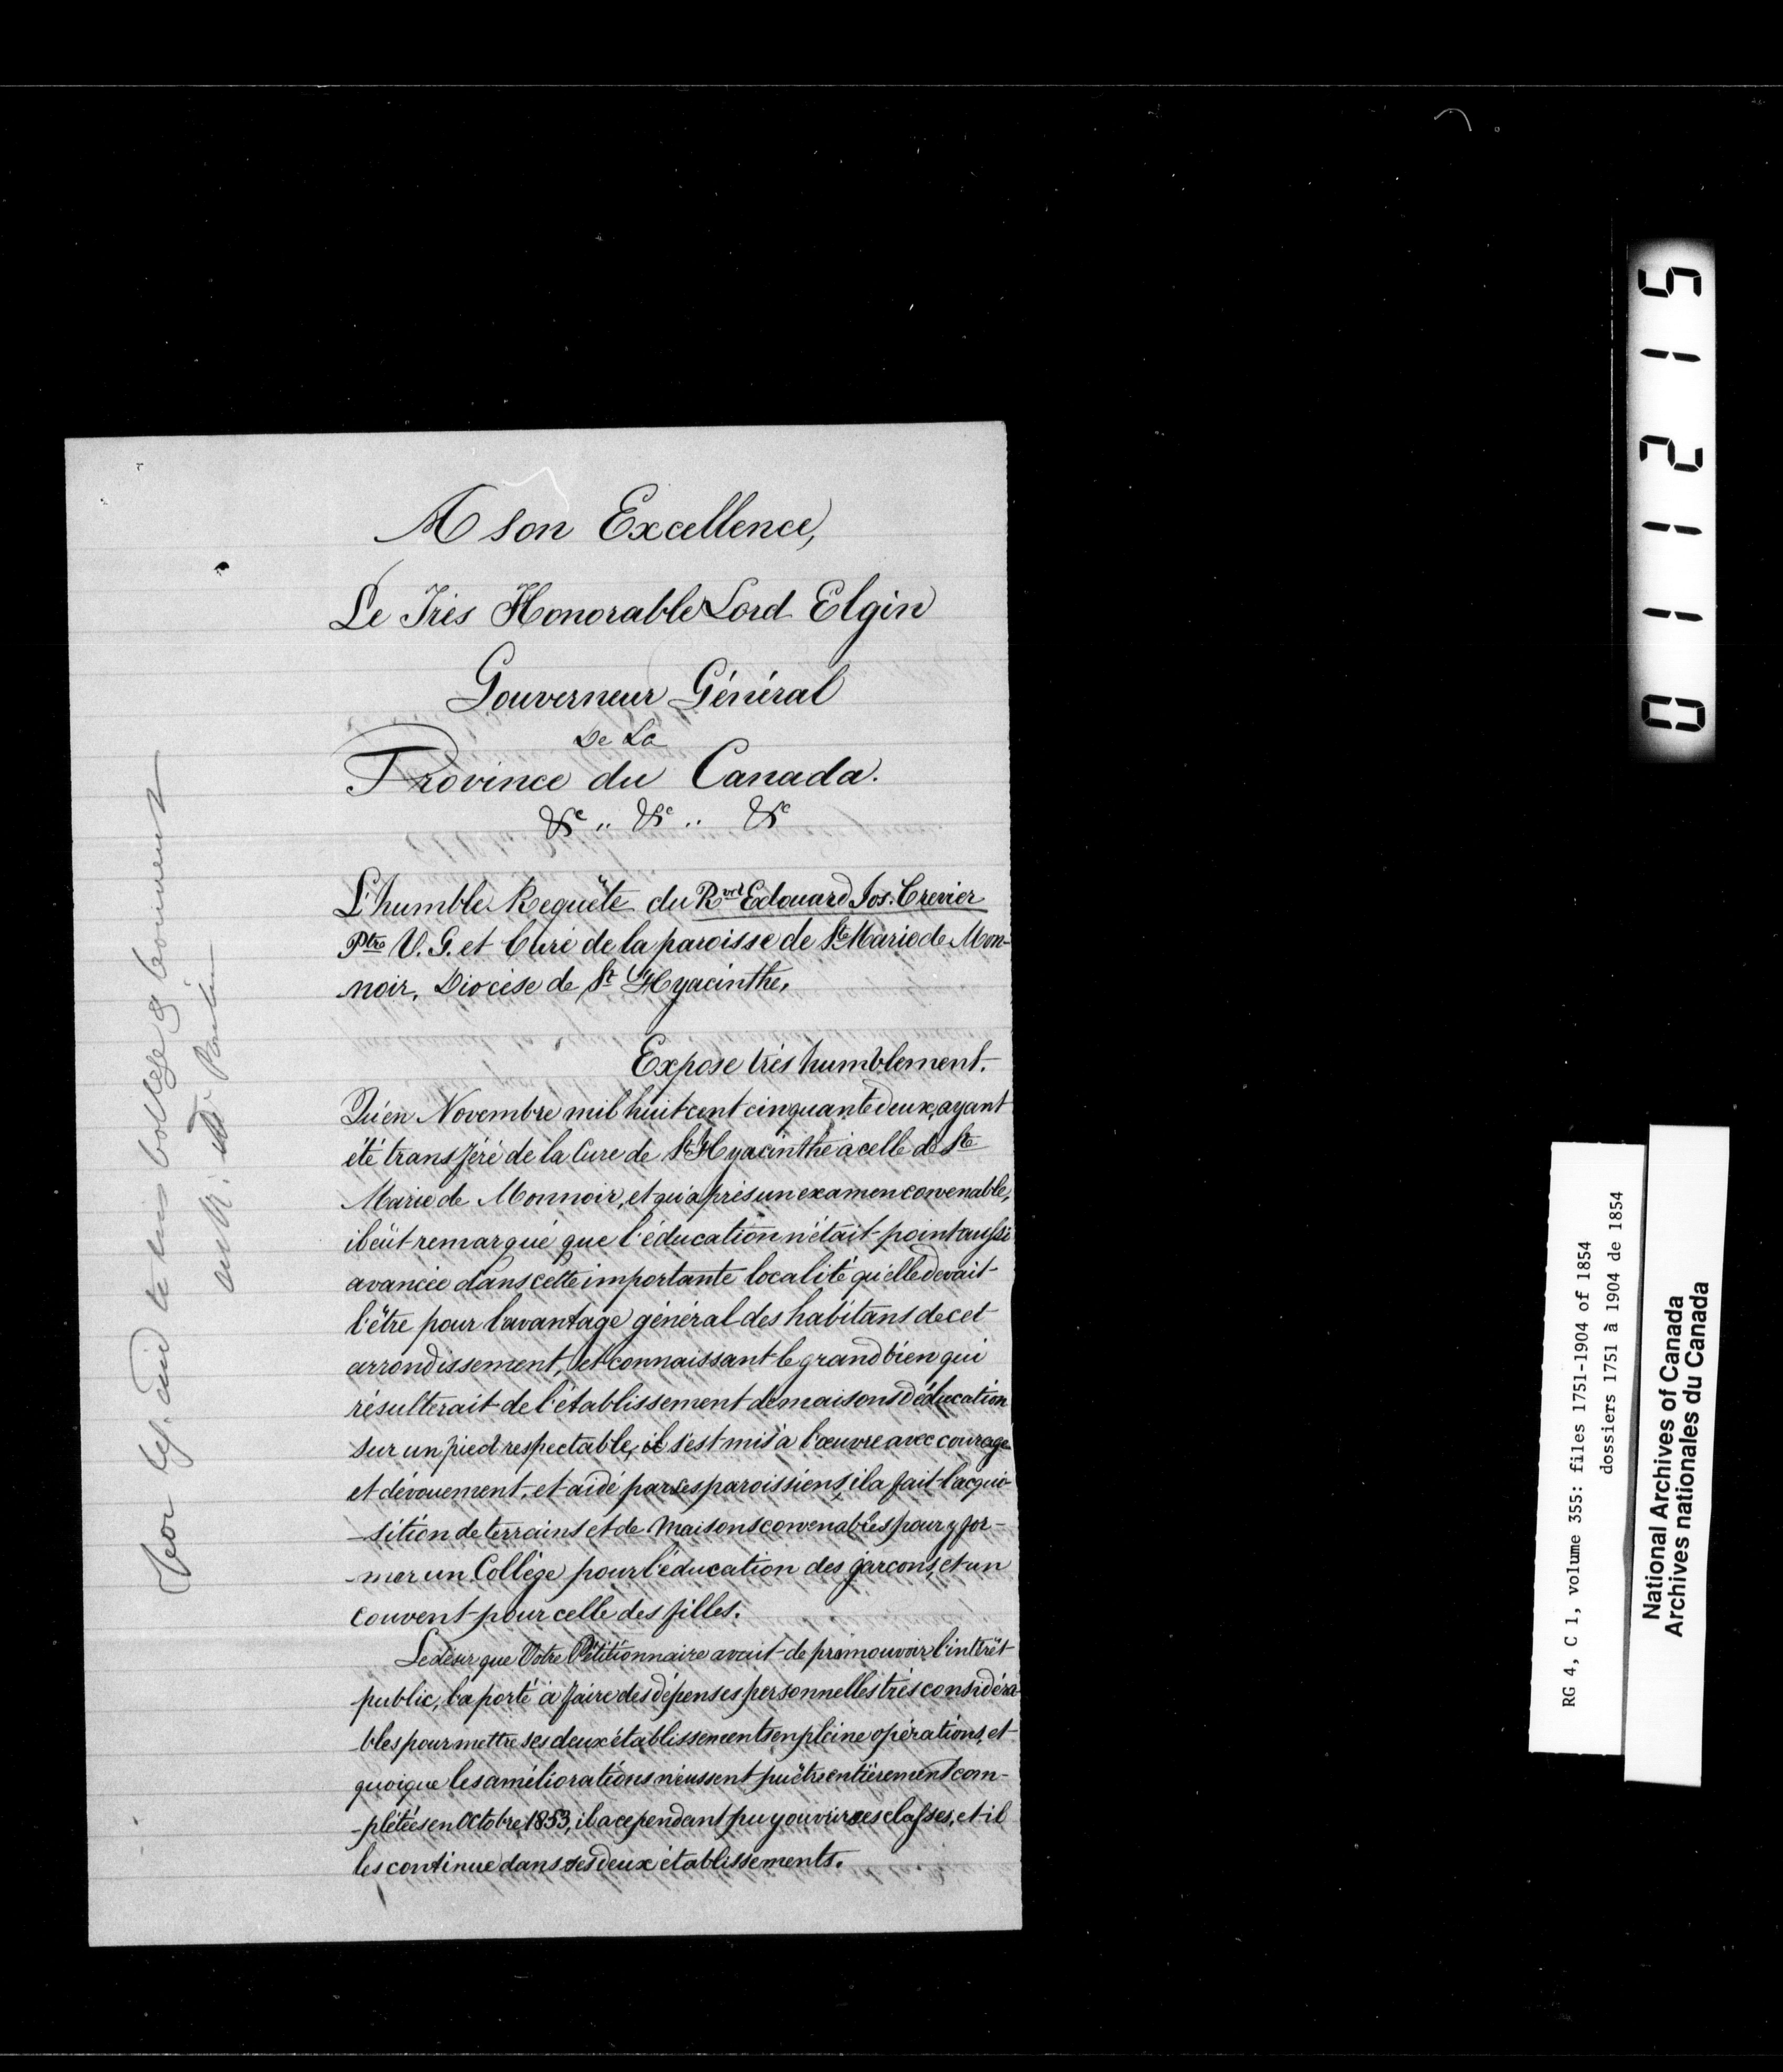 A Son Excellence,
Le Très Honorable Lord Elgin
Gouverneur Général
De La
Province du Canada.
&c .. &c .. &c
L'humble Requête du Rvrd Edouard Jos. Crevier
Ptre V. G. et Curé de la paroisse de Ste Marie de Mon-
noir, Diocèse de St Hyacinthe,
Expose très humblement.
Qu'en Novembre mil huit cent cinquante deux, ayant
été transféré de la Cure de St Hyacinthe à celle de Ste
Marie de Monnoir, et qu'après un examen convenable,
il eût remarqué que l'éducation n'était point aussi
avancée dans cette importante localité qu'elle devait
l'être pour l'avantage général des habitans de cet
arrondissement, et connaissant le grand bien qui
résulterait de l'établissement de maisons d'éducation
sur un pied respectable, il s'est mis à l'œuvre avec courage
et dévouement, et aidé par ses paroissiens, il a fait l'acqui-
-sition de terrains et de Maisons convenables pour y for-
-mer un Collège pour l'éducation des garçons, et un
couvent pour celle des filles.
Le désir que Votre Pétitionnaire avait de promouvoir l'intérêt
public, l'a porté à faire des dépenses personnelles très considéra-
bles pour mettre ses deux établissements en pleine opérations, et
quoique les améliorations n'eussent pu être entièrement com-
-plétées en Octobre 1853, il a cependant pu y ouvrir ses classes, et il
les continue dans ses deux établissements.
01 1 2 1 5
RG 4, C 1, volume 355: files 1751-1904 of 1854
dossiers 1751 à 1904 de 1854
National Archives of Canada
Archives nationales du Canada